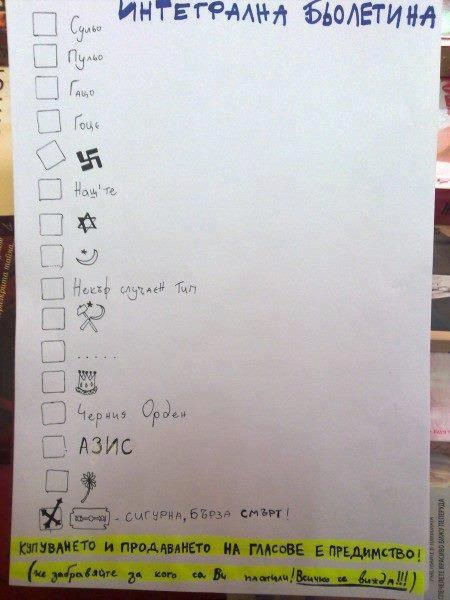 ИНТЕГРАЛНА БЮЛЕТИНА
Сульо
Пульо
Гацо
Гоце
Наш'те
Некъф случаен тип
.....
Черния Орден
АЗИС
- СИГУРНА, БЪРЗА СМЪРТ!
КУПУВАНЕТО И ПРОДАВАНЕТО НА ГЛАСОВЕ Е ПРЕДИМСТВО!
(не забравяйте за кого са Ви платили! Всичко се вижда!!!)